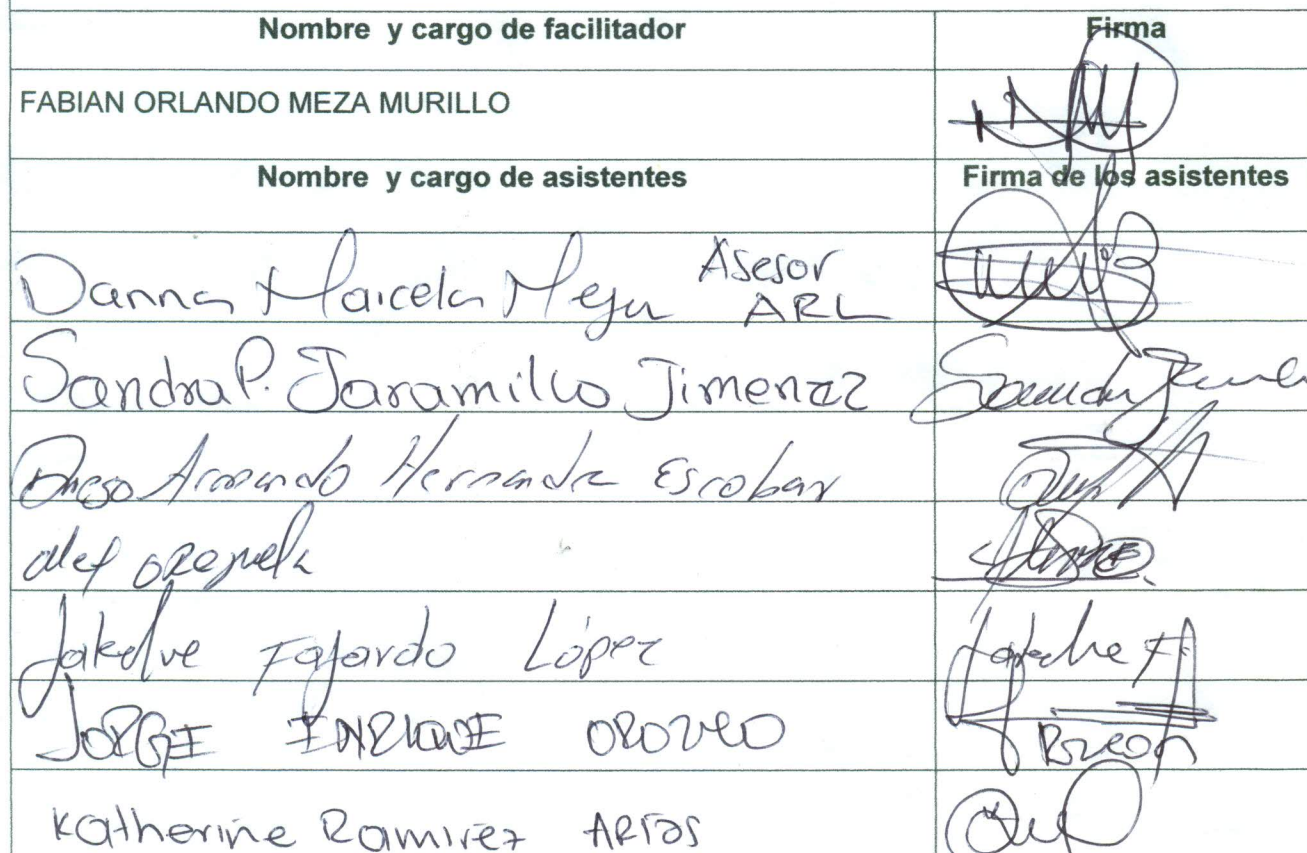 Nombre y cargo de facilitador Firma
FABIAN ORLANDO MEZA MURILLO
Nombre y cargo de asistentes Firma de los asistentes
Danna Marcela Mejia Asesor ARL
Sandra P. Jaramillo Jimenez
Diego Armando Hernandez Escobar
alex orejuela
Jakelive Fajardo López
JORGE ENRIQUE OROZCO
Katherine Ramirez Arias